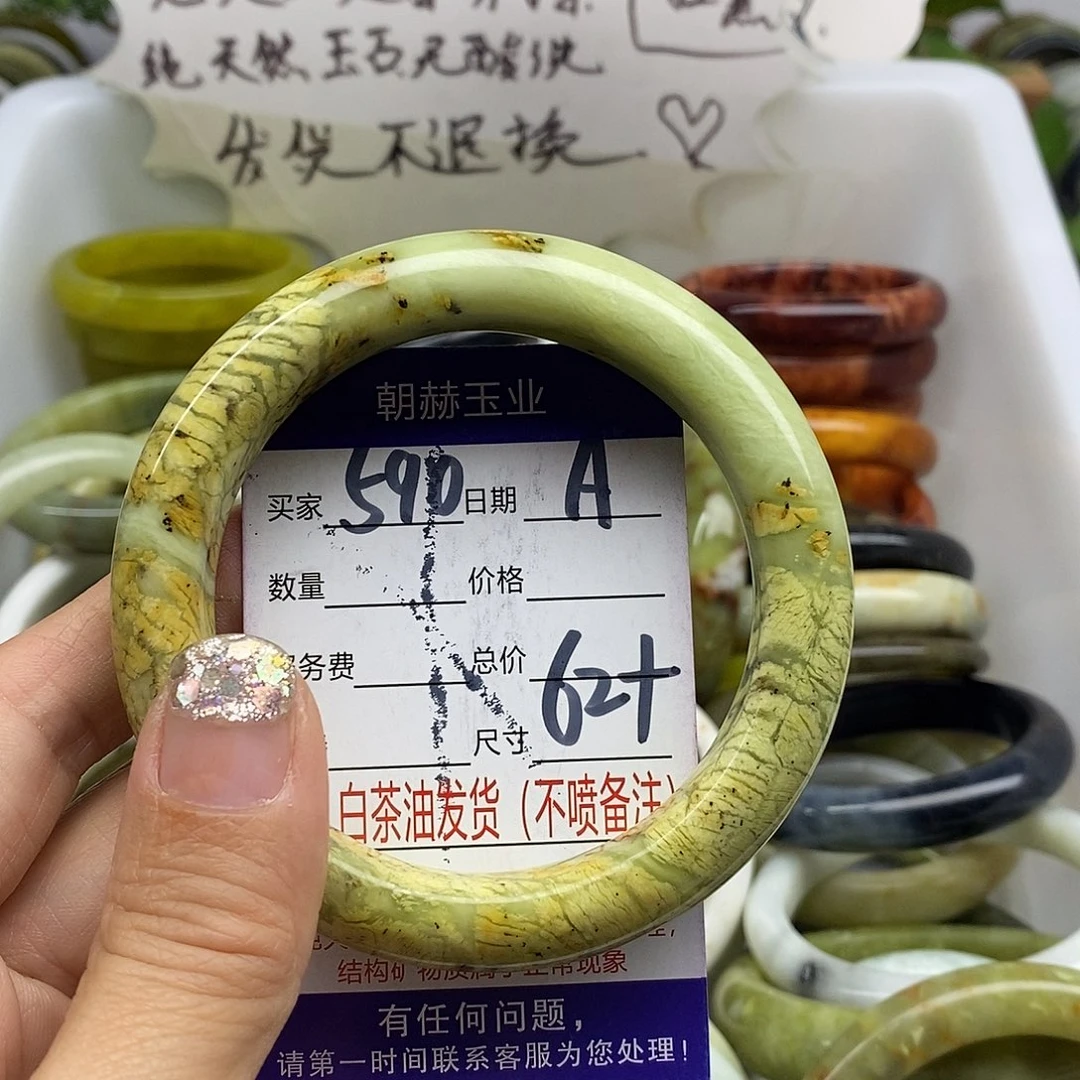 纯天然玉石无酸洗
发货不退换
朝赫玉业
买家 590 日期 A
数量 价格
务费 总价
尺寸 62+
白茶油发货（不喷备注）
结构矿物质属于正常现象
有任何问题，
请第一时间联系客服为您处理！